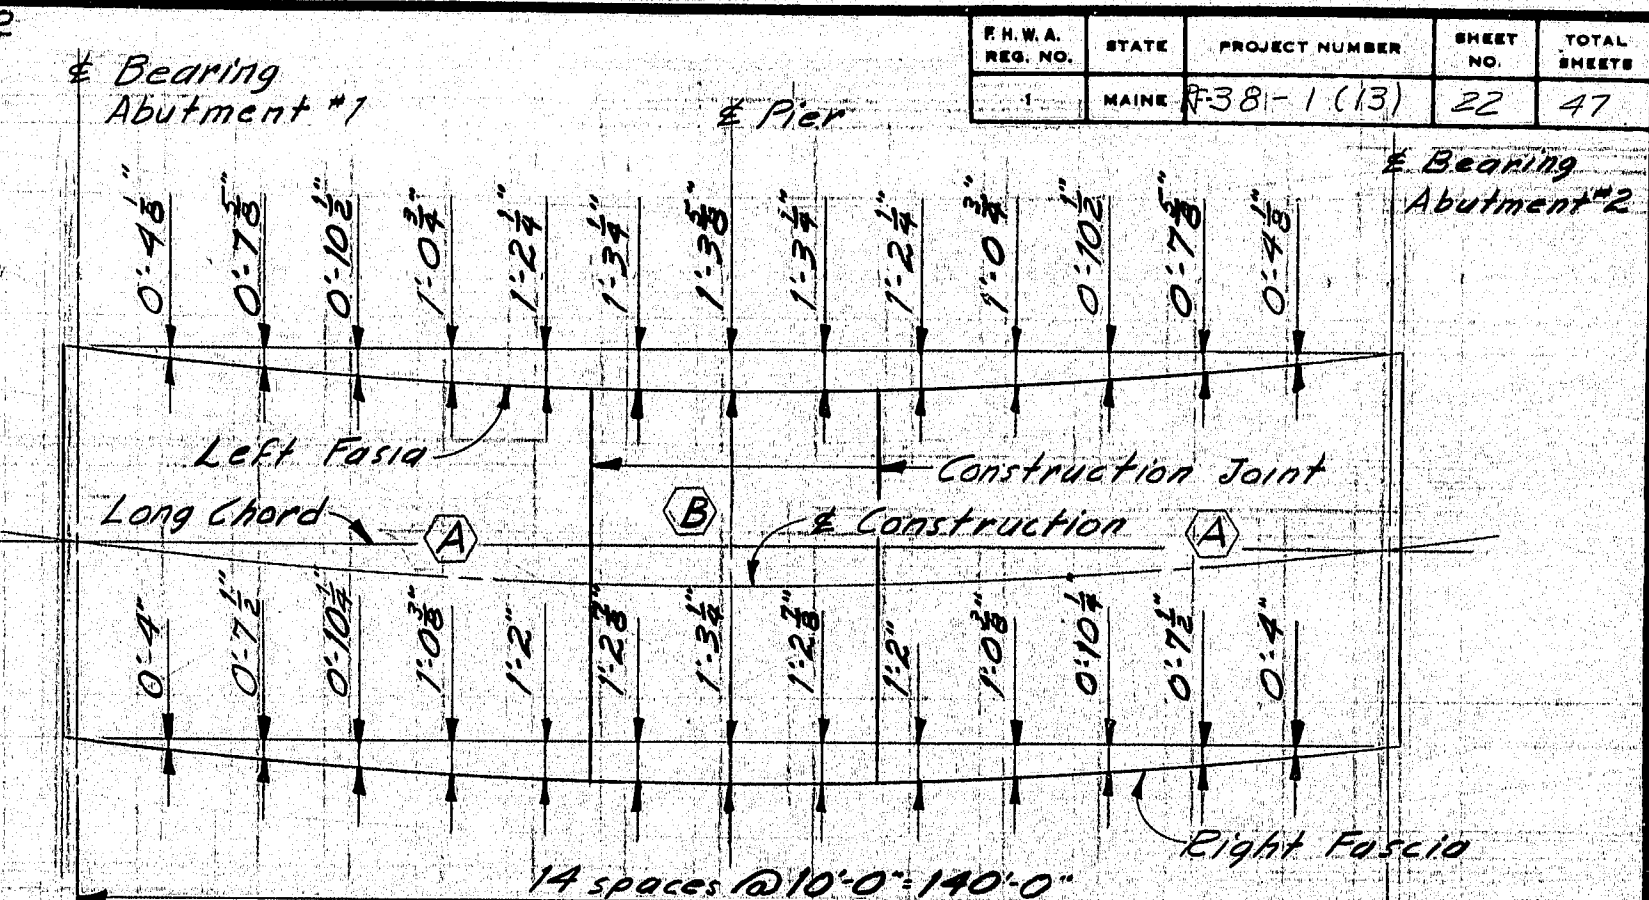 F.H.W.A. REG. NO.
STATE
PROJECT NUMBER
SHEET NO.
TOTAL SHEETS
1
MAINE
F-38-1(13)
22
47
℄ Bearing
Abutment #1
℄ Pier
℄ Bearing
Abutment #2
0'-4 1/8" 0'-7 5/8" 0'-10 1/2" 1'-0 3/4" 1'-2 1/4" 1'-3 1/4" 1'-3 5/8" 1'-3 1/4" 1'-2 1/4" 1'-0 3/4" 0'-10 1/2" 0'-7 5/8" 0'-4 1/8"
Left Fasia
Construction Joint
Long Chord
A
B
℄ Construction
A
0'-4" 0'-7 1/2" 0'-10 1/4" 1'-0 3/8" 1'-2" 1'-2 7/8" 1'-3 1/4" 1'-2 7/8" 1'-2" 1'-0 3/8" 0'-10 1/4" 0'-7 1/2" 0'-4"
Right Fascia
14 spaces @ 10'-0" = 140'-0"